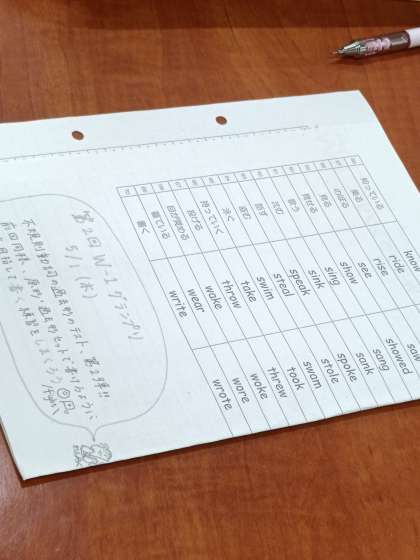 知っている know
乗る ride
のぼる rise
見る see saw
見せる show showed
歌う sing sang
沈む sink sank
話す speak spoke
盗む steal stole
泳ぐ swim swam
持っていく take took
投げる throw threw
目が覚める wake woke
着ている wear wore
書く write wrote
第2回 W-1 グランプリ
(木)
不規則動詞の過去形のテスト、第2弾!!
前回同様、原形、過去形セットで書けるように
目指して書く練習をしましょう